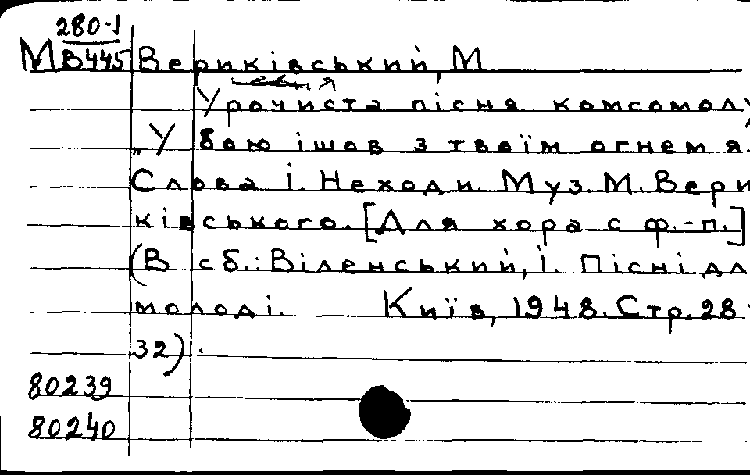 280-1
М В445 Вериківський, М
Урочиста пісня комсомолу
„У бою ішов з твоїм огнем я.
Слова І. Неходи. Муз. М. Вери
ківського. [Для хора с ф.-п.]
(В сб.: Віленський, І. Пісні дл
молоді. Київ, 1948. Стр. 28-
32).
80239
80240